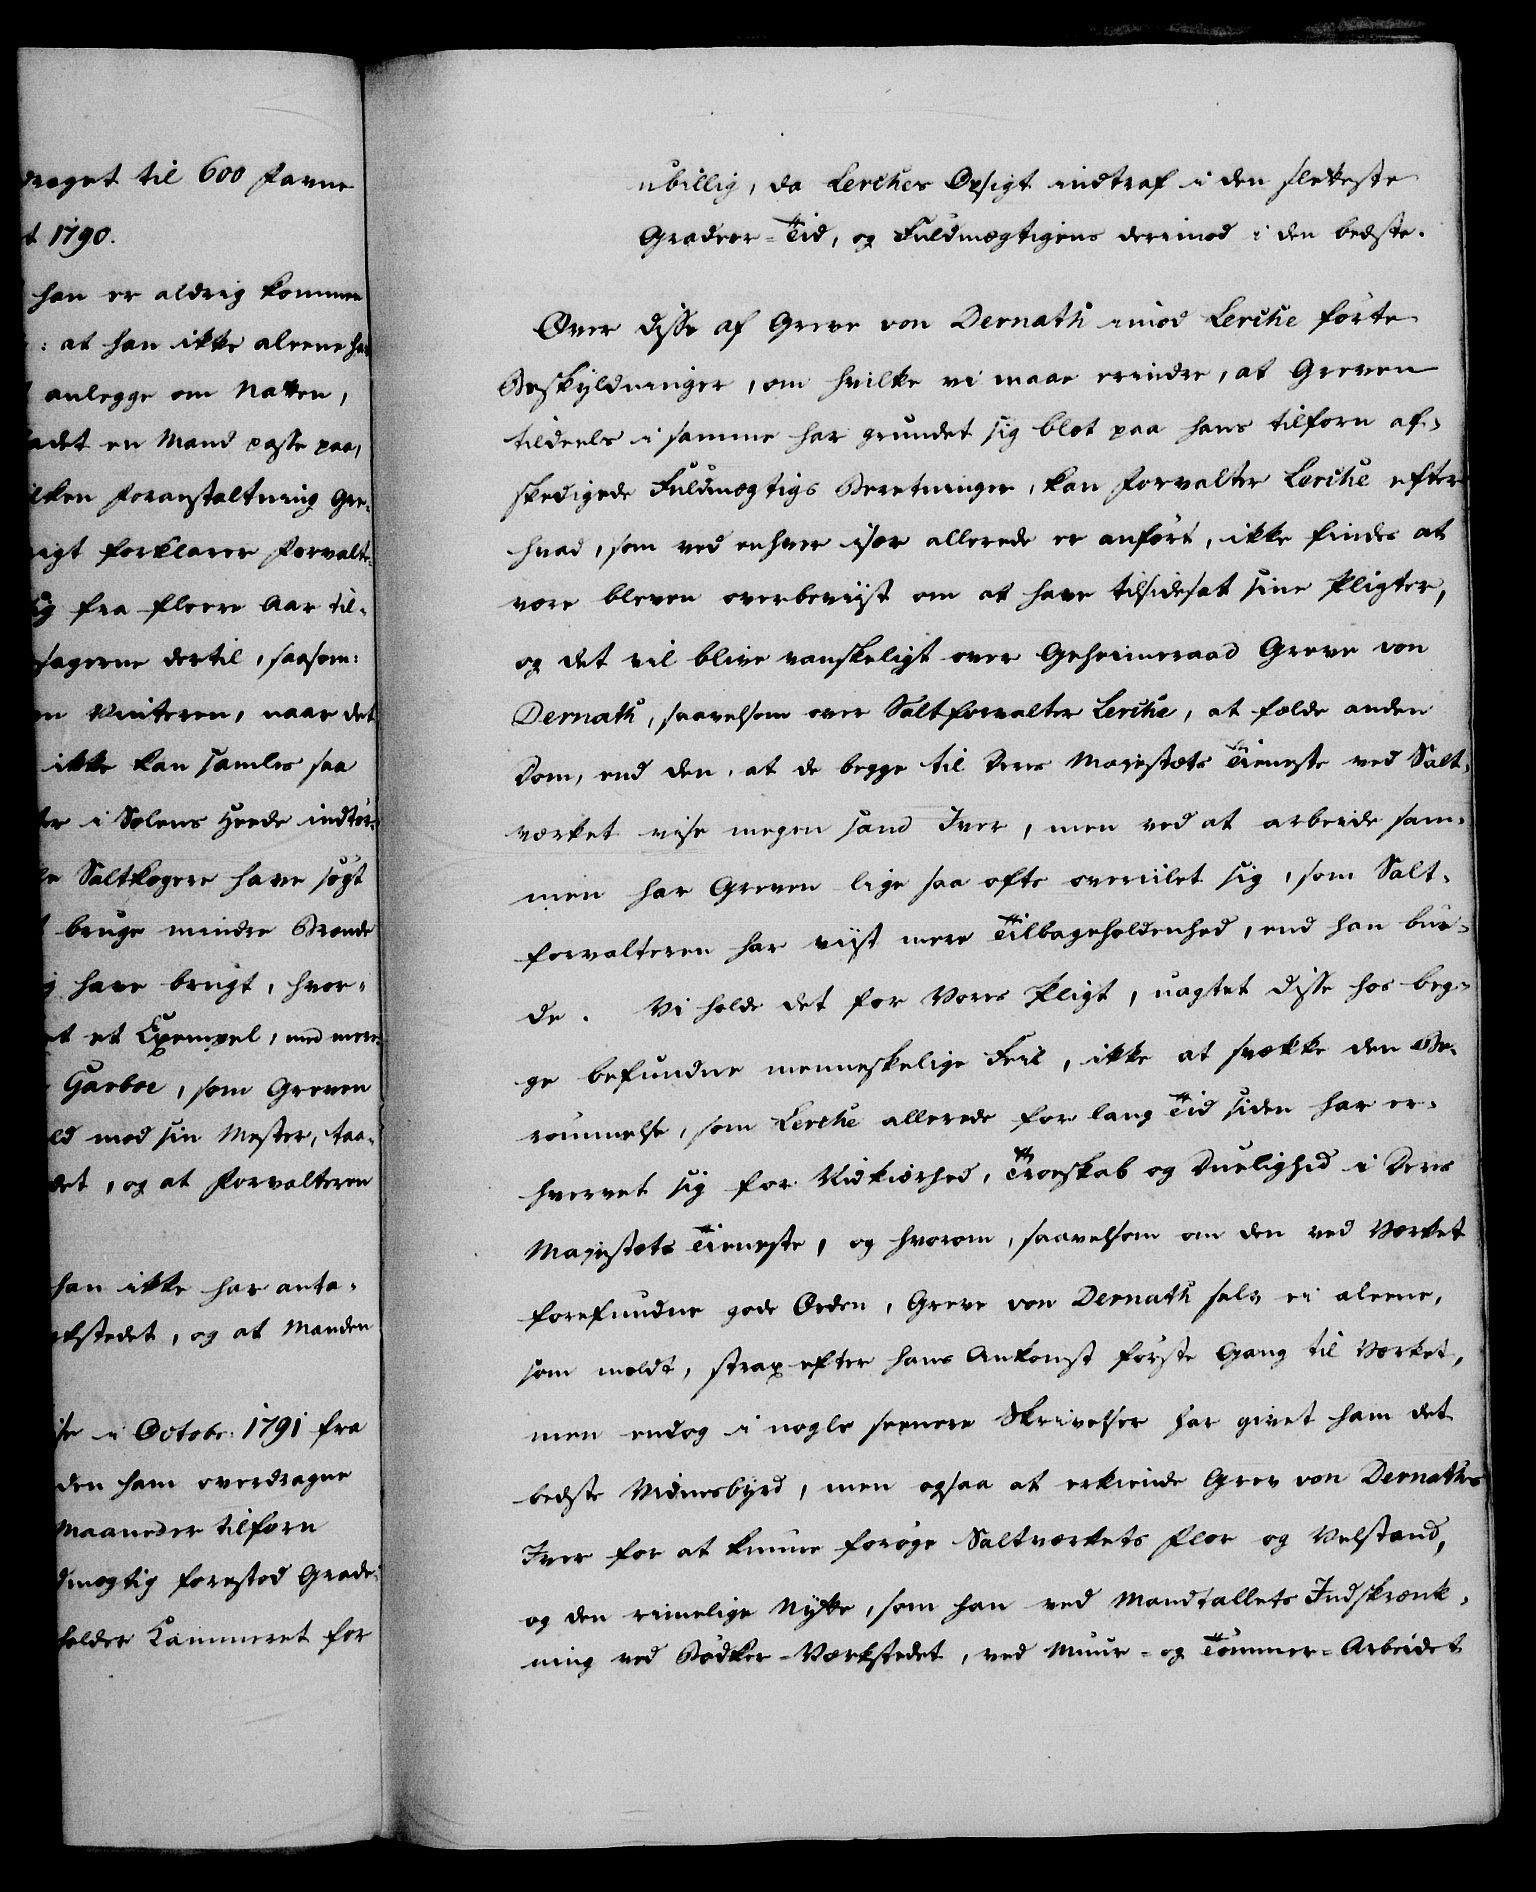 draget til 600 Favne
t 1790.
han er aldrig kommen
: at han ikke aleene har
anlegge om Natten,
adet en Mand passe paa,
ilken Foranstaltning Gre-
rigt forklarer Forvalte-
ig fra fleere Aar til-
sagerne dertil, saasom:
en Vinteren, naar det
ikke kan samles saa
ter i Solens Heede indtør-
le Saltkogere have søgt
t bruge mindre Brænde
g have brugt, hvor-
et et Exempel, med mere
Garboe, som Greven
ld mod sin Mester, taa-
det, og at Forvalteren
han ikke har anta-
rkstedet, og at Manden
ise i Octobr: 1791 fra
den ham overdragne
Maaneder tilforn
dmægtig forestod Grade-
holder Kammeret for
ubillig, da Lerches Opsigt indtraf i den sletteste
Gradeer-Tid, og Fuldmægtigens derimod i den bedste.
Over disse af Greve von Dernath imod Lerche førte
Beskyldninger, om hvilke vi maae erindre, at Greven
tildeels i samme har grundet sig blot paa hans tilforn af-
skedigede Fuldmægtigs Beretninger, kan Forvalter Lerche efter
hvad, som ved enhver især allerede er anført, ikke findes at
være bleven overbeviist om at have tilsidesat sine Pligter,
og det vil blive vanskeligt over Geheimeraad Greve von
Dernath, saavelsom over Saltforvalter Lerche, at fælde anden
Dom, end den, at de begge til Deres Majestæts Tieneste ved Salt-
værket vise megen sand Iver, men ved at arbeide sam-
men har Greven lige saa ofte overiilet sig, som Salt-
forvalteren har viist mere Tilbageholdenhed, end han bur-
de. Vi holde det for Vores Pligt, uagtet disse hos beg-
ge befundne menneskelige Feil, ikke at svække den Be-
rømmelse, som Lerche allerede for lang Tid siden har er-
hvervet sig for Vidkiærhed, Troeskab og Duelighed i Deres
Majestæts Tieneste, og hvorom, saavelsom om den ved Værket
forefundne gode Orden, Greve von Dernath selv ei aleene,
som meldt, strax efter hans Ankomst første Gang til Værket,
men endog i nogle seenere Skrivelser har givet ham det
bedste Vidnesbyrd, men ogsaa at erkiende Grev von Dernaths
Iver for at kunne forøge Saltværkets Flor og Velstand,
og den rimelige Nytte, som han ved Mandtallets Indskrænk-
ning ved Bødker-Værkstedet, ved Muur- og Tømmer-Arbeidet